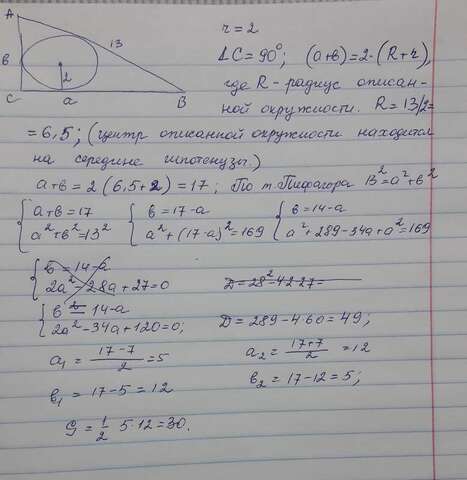 A
в
C
a
2
13
B
r = 2
∠C = 90°; (a+в) = 2·(R+r),
где R - радиус описан-
ной окружности. R = 13/2 =
= 6,5; (центр описанной окружности находится
на середине гипотенузы)
a+в = 2(6,5+2) = 17; По т Пифагора 13² = a²+в²
{ a+в = 17
{ a²+в² = 13²
{ в = 17-a
{ a²+(17-a)² = 169
{ в = 14-a
{ a²+289-34a+a² = 169
{ в = 14-a
{ 2a²-28a+27=0
D = 28²-4·2·27 =
{ в = 14-a
{ 2a²-34a+120=0;
D = 289-460=49;
a₁ = (17-7)/2 = 5
a₂ = (17+7)/2 = 12
в₁ = 17-5 = 12
в₂ = 17-12 = 5;
S = 1/2 · 5·12 = 30.